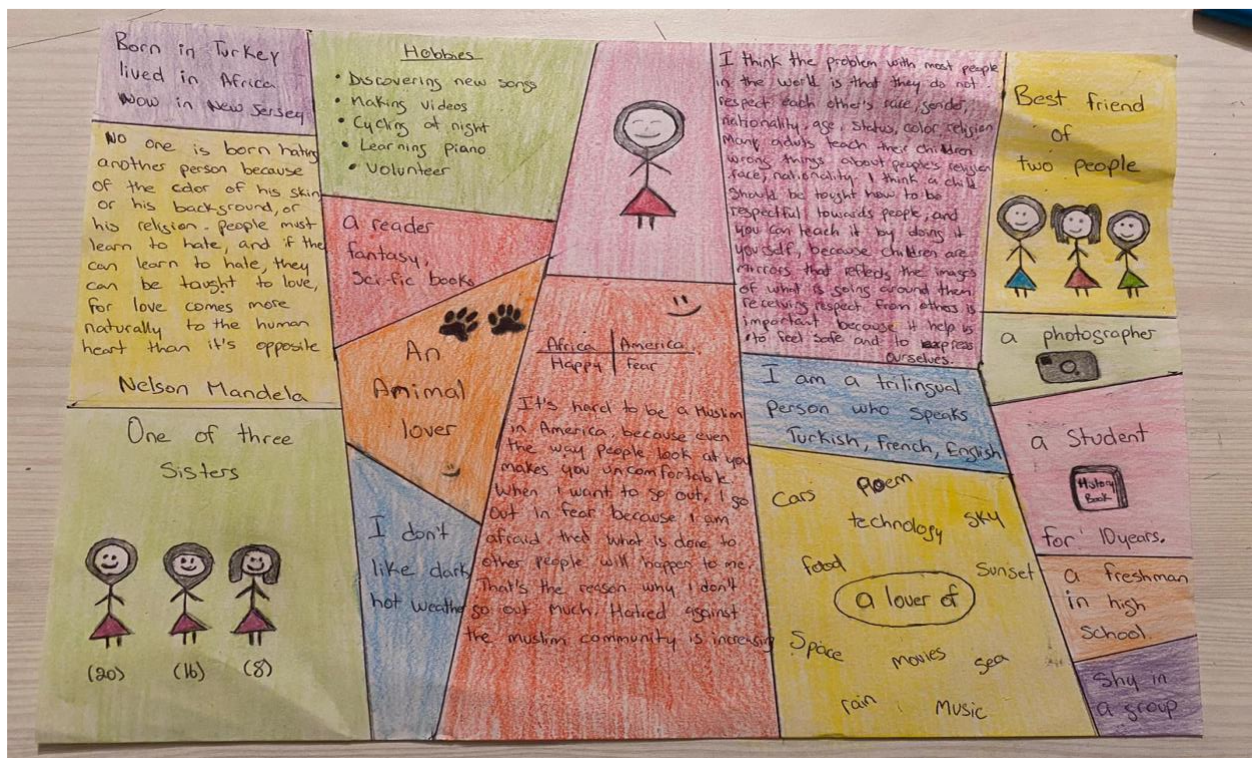 Born in Turkey
lived in Africa
Now in New Jersey
No one is born hating
another person because
of the color of his skin
or his background, or
his religion. people must
learn to hate, and if the
can learn to hate, they
can be taught to love,
for love comes more
naturally to the human
heart than it's opposite
Nelson Mandela
One of three
Sisters
(20) (16) (8)
Hobbies
• Discovering new songs
• Making videos
• Cycling at night
• Learning piano
• Volunteer
a reader
fantasy,
Sci-fic books
An
Animal
lover
I don't
like dark
hot weathe
Africa America
Happy Fear
It's hard to be a Muslim
in America, because even
the way people look at you
makes you uncomfortable.
When I want to go out, I go
out in fear because I am
afraid that what is done to
other people will happen to me.
That's the reason why I don't
go out much. Hatied against
the muslim community is increasing
I think the problem with most people
in the world is that they do not
respect each other's race, gender,
nationality, age, status, color religion
Many adults teach their children
wrong things about people's religion
race, nationality. I think a child
should be tought how to be
respectful towards people, and
you can teach it by doing it
yourself, because children are
mirrors that reflects the images
of what is going around them
receiving respect from others is
important because it help us
to feel safe and to express
ourselves.
I am a trilingual
Person who speaks
Turkish, French, English
Cars Poem
technology SKY
food Sunset
a lover of
Space movies sea
rain, Music
Best friend
of
two people
a photographer
a Student
History
Book
for 10 years.
a freshman
in high
School.
Shy in
a group